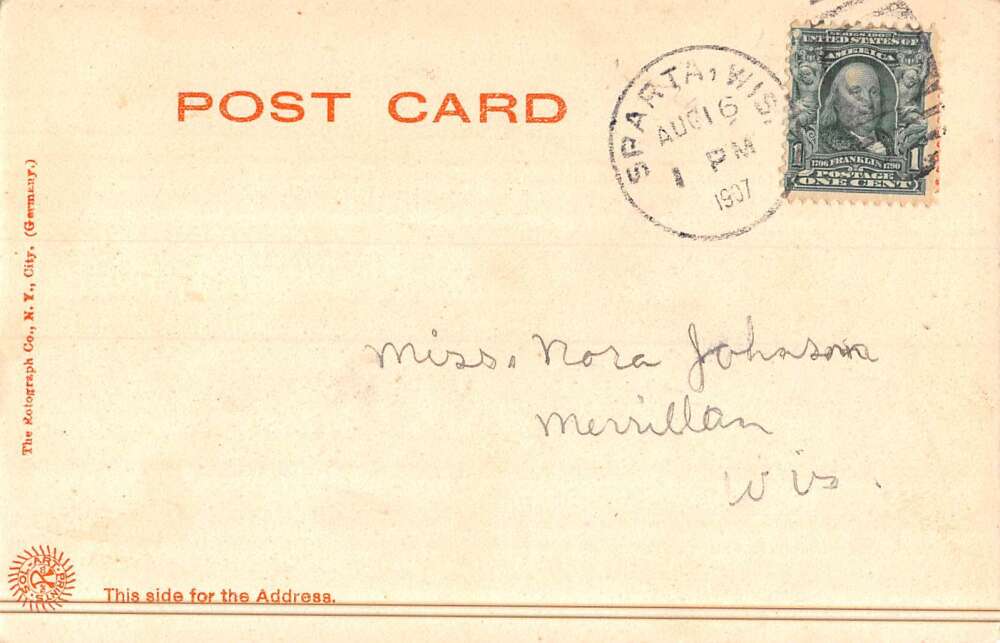 POST CARD
SPARTA, WIS.
AUG 16
1 PM
1907
SERIES 1902
UNITED STATES OF
AMERICA
1 1706 FRANKLIN 1790 1
POSTAGE
ONE CENT
The Rotograph Co., N. Y., City. (Germany.)
Miss. Nora Johnson
Merrillan
Wis.
SOL ART PRINTS
This side for the Address.